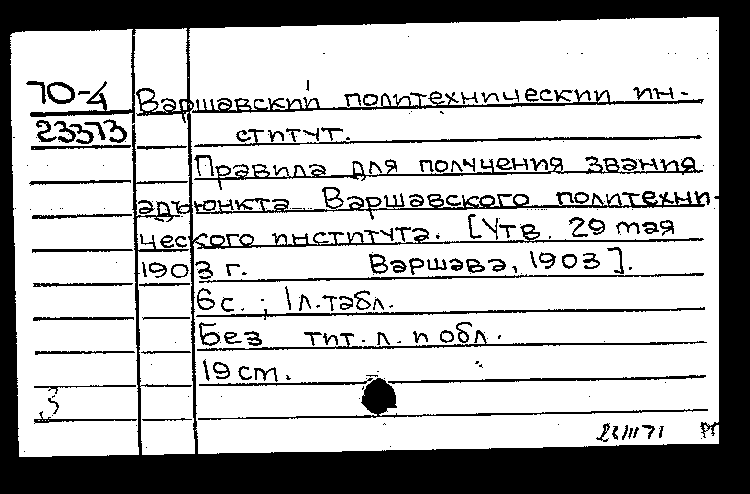 70-4 Варшавский политехнический ин-
23373 ститут.
Правила для получения звания
адъюнкта Варшавского политехни-
ческого института. [Утв. 29 мая
1903 г. Варшава, 1903].
6 с.; 1 л. табл.
Без тит. л. и обл.
19 cm.
3